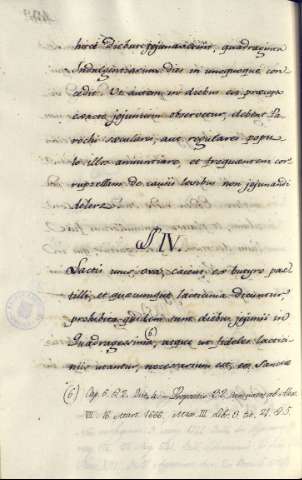 hoc Diebus jejunaverint, quadraginta
Indulgentiarum dies in unoquoque con
cedit. Ut autem in diebus eis præcep
jejunium observetur, debent Pa
rochi sæculares, aut regulares popu
lo illo annuntiare, et frequentem cor
ruptellam de causis levibus non jejunandi
delere
§ IV.
Lactis usus, ova, caseus, et butyro pas
tilli, et quæcumque lacticinia dicuntur,
prohibita quidem sunt diebus jejunii in
Quadragesima, (6) atque ut fideles lactici
niis utantur, necessarium est, ex Sanctæ
(6) Cap. 6. D. 2. Propositio 32 ab Alex.
VII. 18. Mart. 1666. Lib. 3. tit. 21. § 5.